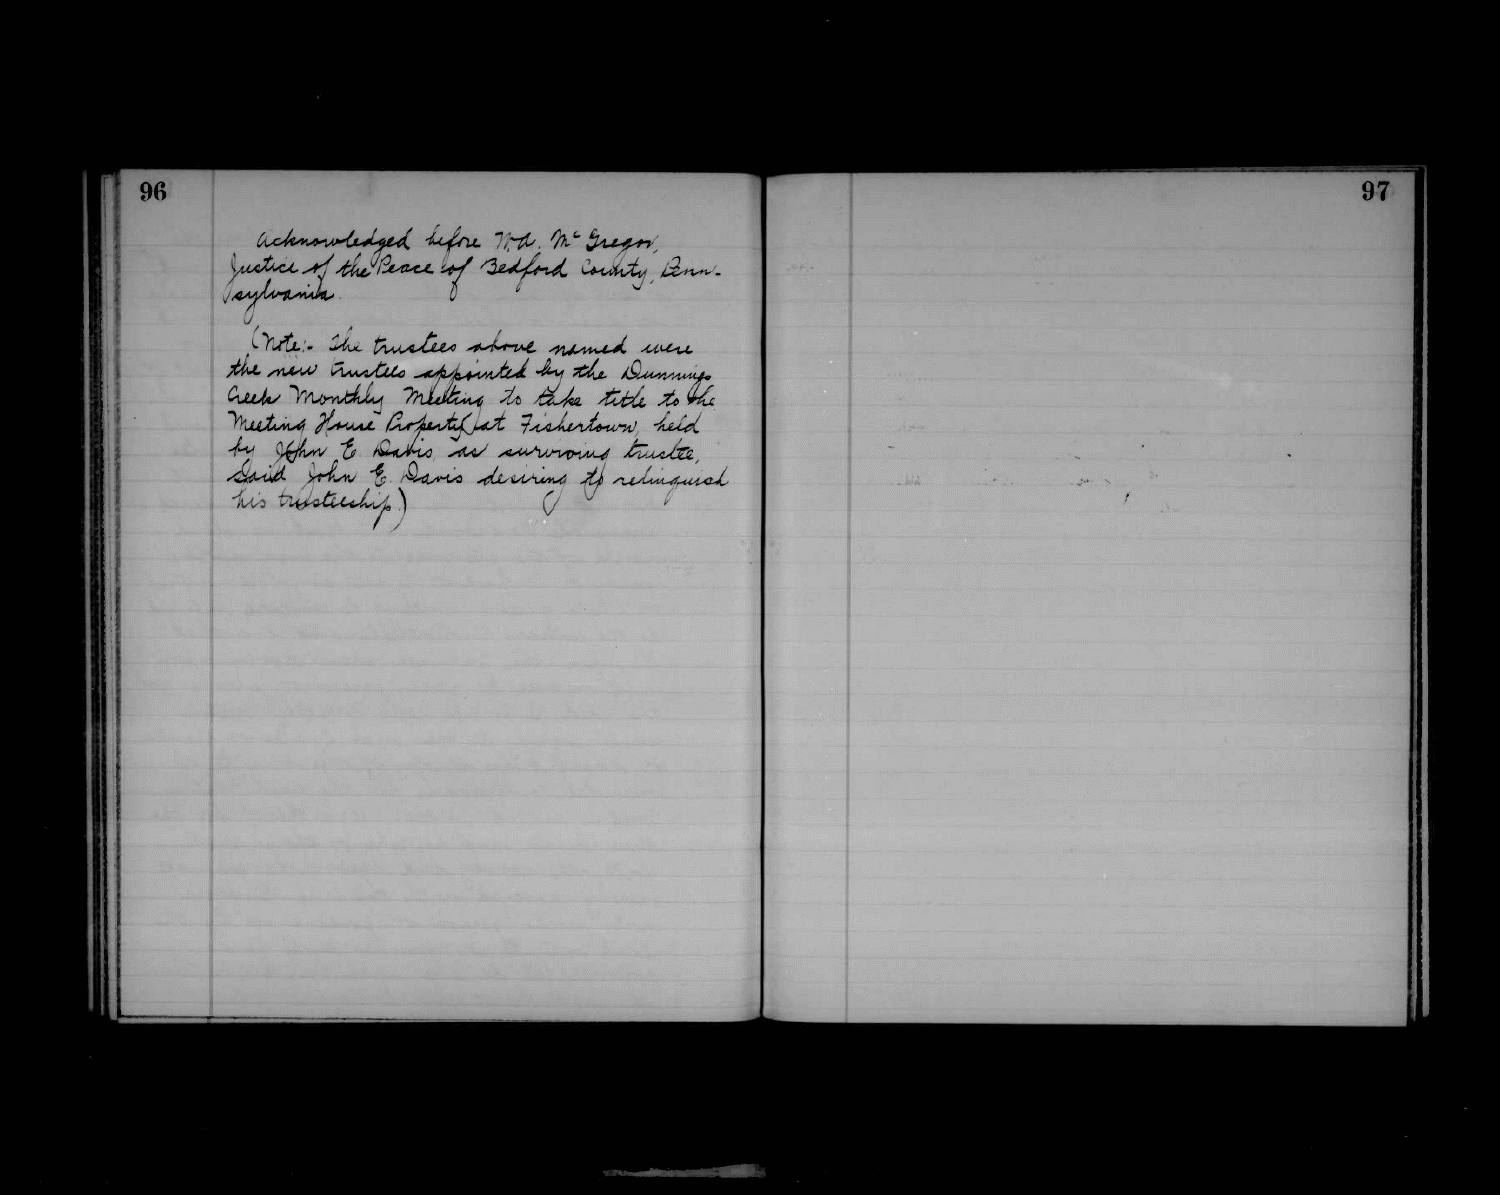 96
Acknowledged before W. A. McGregor,
Justice of the Peace of Bedford County, Penn-
sylvania.
(Note:- The trustees above named were
the new trustees appointed by the Dunnings
Creek Monthly Meeting to take title to the
Meeting House Property at Fishertown, held
by John E. Davis, as surviving trustee,
said John E. Davis desiring to relinquish
his trusteeship.)
97